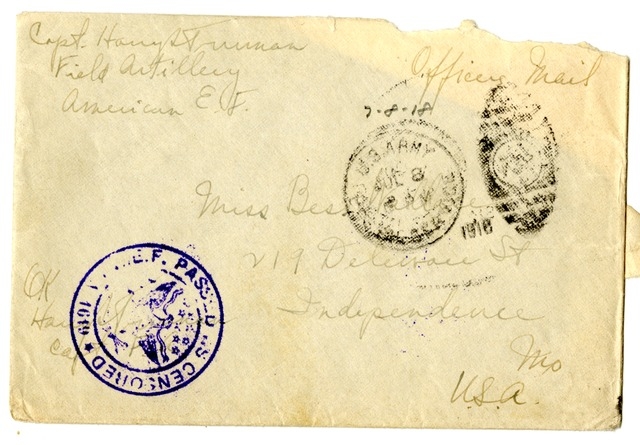 Capt. Harry S Truman
Field Artillery
American E. F.
Officers Mail
7-8-18
U.S. ARMY
8
1918
Miss Bess
219 Delaware St
Independence
Mo
U.S.A.
A.E.F. PASSED AS CENSORED
1619
OK
Capt